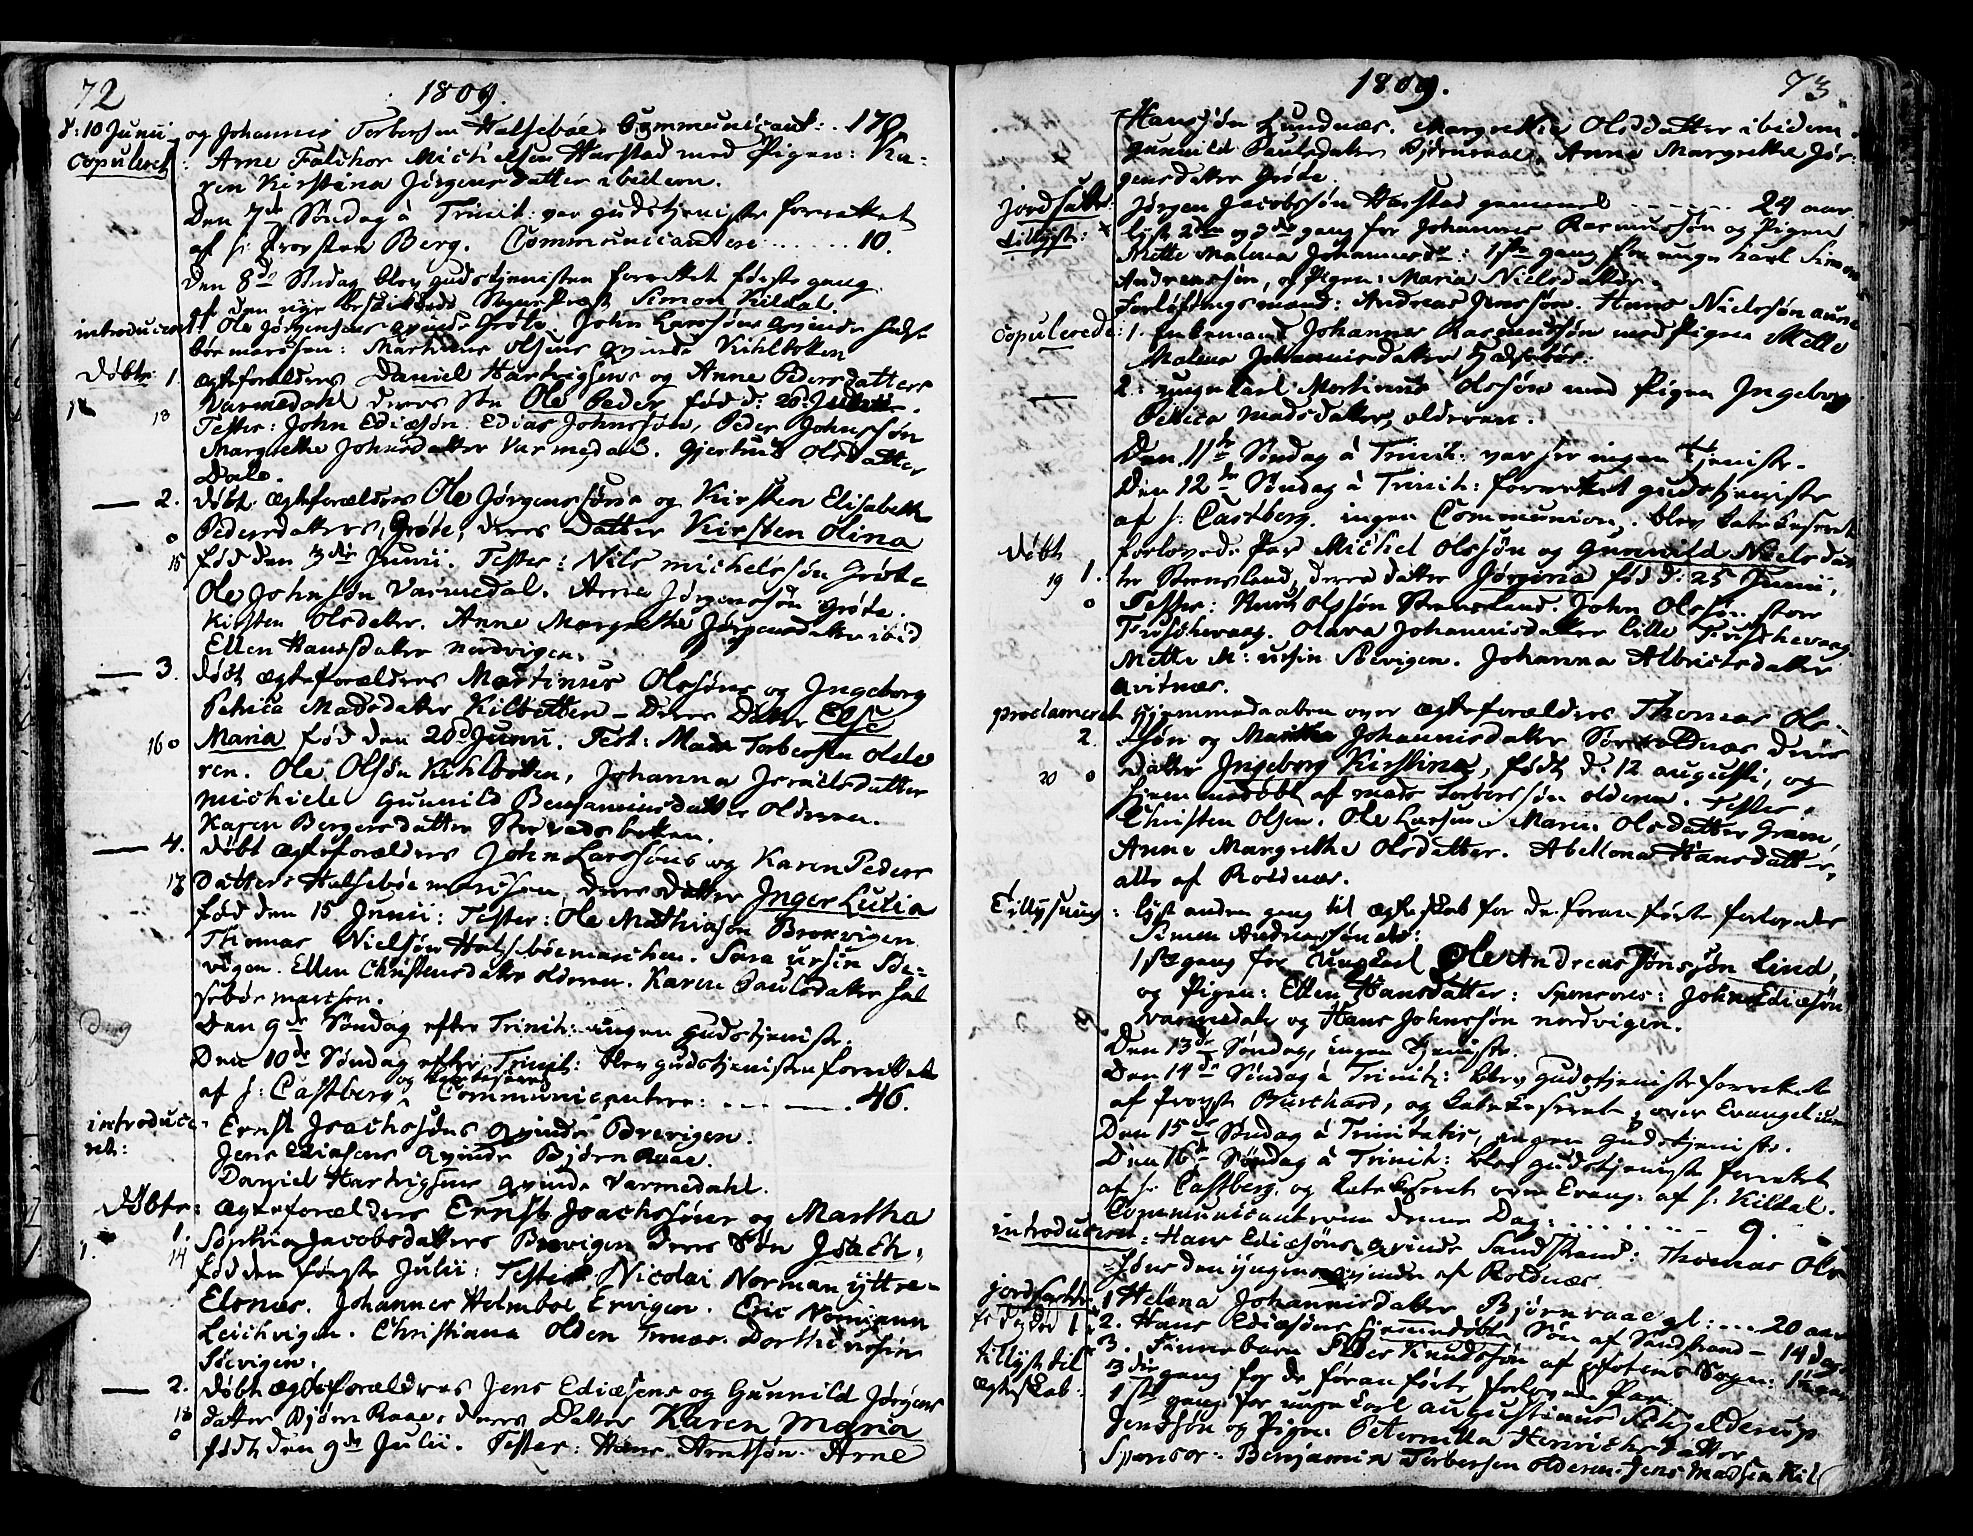 72
1809.
d: 10 Junii og Johannes Torbersen Halsebøe. Communicant: 170
Copuleret: Arne Falchor Michelsen Harstad med Pigen: Ka-
ren Kirstina Jørgensdatter ibidem.
Den 7de Søndag à Trinit: var gudstjeniste forrettet
af h: Provsten Berg. Communicantere: ...... 10.
Den 8de Søndag blev gudstjenisten forrettet første gang
af den nye Sogne Præst Simon Kildal.
introduceret: Ole Jørgensens qvinde Grøte. John Larssøns qvinde Halse
bøe marchsen: Martinus Olsens qvinde Kihlbotten
Døbte 1. ægteforældres Daniel Hartvigsens og Anne Pedersdatters
Varmedahl deres søn Ole Peder fød d: 20
13
Tester: John Ediæsøn. Edias Johnssøn, Peder Johnssøn
Margrethe Johnsdatter Varmedal. Gjertrud Olsdatter
Dale.
2. døbt ægteforældres Ole Jørgenssøns og Kirsten Elisabeth
Pedersdatters, Grøte, deres Datter Kirsten Olina
15 fød den 3die Junii. Tester: Nils Michelssøn Grøte
Ole Johnssøn Varmedal. Arne Jørgenssøn Grøte.
Kirsten Olsdatter. Anne Margrethe Jørgensdatter ibid
Ellen Hansdatter Nordvigen.
3. døbt ægteforældres Martinus Olssøns og Ingeborg
Petrica Madsdatter Kilbotten - Deres Datter Else
16 Maria fød den 20d Junii. Test: Mads Torbersen Olde
ren. Ole Olsøn Kihlbotten, Johanna Israelsdatter
Gunnild Benjaminsdatter Olderen.
Karen Bergersdatter
4. døbt ægteforældres John Larssøns og Karen Peders
17 datters Halsebøe marchsen, deres datter Inger Lucia
fød den 15 Junii: Tester: Ole Mathiasøn Brovigen
Thomas Nielsøn Halsebøemarchen. Sara Ursin Søe-
vigen. Ellen Christensdatter Olderen. Karen Paulsdatter Hal
sebøe marchsen.
Den 9de Søndag efter Trinit: ingen gudstjeniste.
Den 10de Søndag efter Trinit: blev gudstjenisten forrettet
af h: Castberg, og Catechiseret Communicantere: ... 46.
introduce-
ret:
Ernst Isachssøns qvinde Brevigen.
Jens Ediæsens qvinde Bjørn Raae.
Daniel Hartvigsens qvinde Varmedahl.
Døbte: ægteforældres Ernst Isachssøns og Martha
1. Sophia Jacobsdatters Brevigen deres Søn Isach,
14 fød den første Julii: Tester Nicolai Norman yttre-
Elsnæs. Johannes Holmboe Ervigen. Eric Normann
Leichvigen. Christiana Olden Trænæs. Dorthe Ursin
Søevigen.
2. døbt ægteforældres Jens Ediæsens og Gunnild Jørgens
18 datter Bjørn Raae, deres Datter Karen Maria
født den 9de Julii. Tester: Hans Arntsøn. Arne
1809.
73.
Hanssøn Lundnæs. Margrethe Olsdatter ibidem.
Gunnild Paulsdatter Bjørnraae. Anne Margrethe Jør-
gensdatter Grøte.
Jordsatte: Jørgen Jacobssøn Harstad gammel ...... 24 aar
tillyst: lyst 2den og 3de gang for Johannes Rasmussøn og Pigen
Mette Malena Johannesd:: 1ste gang for unge karl Simon
Andreassøn, og Pigen: Maria Nielsdatter.
Forlovningsmænd: Andreas Jenssøn. Hans Nielssøn
Copulerede: 1. Enkemand Johannes Rasmussøn med Pigen Mette
Malena Johannisdatter Halsebøe.
2. unge karl Martinus Olssøn med Pigen Ingeborg
Petrica Madsdatter, olderen.
Den 11te Søndag à Trinit: var her ingen Tjeniste.
Den 12te Søndag à Trinit: forrettet gudstjeniste
af h: Castberg. ingen Communion, blev Catechiseret
Døbt forlovede Par Michel Olssøn og Gunnild Nielsdat
19 1. ter Stensland, deres datter Jørgina fød d: 25 Junii,
Tester: Knud Olssøn Stensland. John Olssøn store
Trischevaag. Olava Johannisdatter lille Trischevaag
Mette M: Ursin Søevigen. Johanna Albrictsdatter
Qvitnæs.
proclameret Hjemmedaaben over ægteforældres Thomas Ols-
2. søn og Martha Johannisdatter Rolnæs deres
20 datter Ingeborg Kirstina, født d: 12 augusti, og
hjemmedøbt af Mads Torberssøn olderen. Tester.
Christen Olsen. Ole Larsen. Maren Olsdatter Gram,
Anne Margrethe Olsdatter. Abellona Hansdatter,
alle af Roldnæs.
Tillysning: lyst anden gang til ægteskab for de foran førte forlovede
Simon Andreassøn etc:
1ste gang for Ungkarl Ole Andreas Jonssøn Lind,
og Pigen: Ellen Hansdatter: Sponsores: John Ediæsøn
Varmedal og Hans Johnssøn Nordvigen.
Den 13de Søndag, ingen Tjeniste.
Den 14de Søndag à Trinit: blev gudstjeniste forrettet
af Provst Burchard, og Catechiseret, over Evangelium
Den 15de Søndag à Trinitatis, ingen gudstjeniste.
Den 16de Søndag à Trinit: blev gudstjeniste forrettet
af h: Castberg. og Catechiseret over Evang: af h: Kildal.
Communicanterne denne Dag: ........ 9.
introduceret: Hans Ediæsøns qvinde Sandstrand: Thomas Ols
søns den yngres qvinde af Roldnæs
jordfæstede 1 Helena Johannisdatter Bjørnraae gl: ... 20 aar
2. Hans Ediæsøns hjemmedøbte Søn af Sandstrand - 14 dage
3. Finnebarn Peder Knudssøn af Ofotens Sogn:
tillyst til 3die gang for de foran førte forlovede Par.
ægteskab: 1ste gang for unge karl Augustinus Schjelderup
Jenssøn og Pigen Peternilla Henrichsdatter
Sponsor: Benjamin Torbersen olderen. Jens Madsen Kil